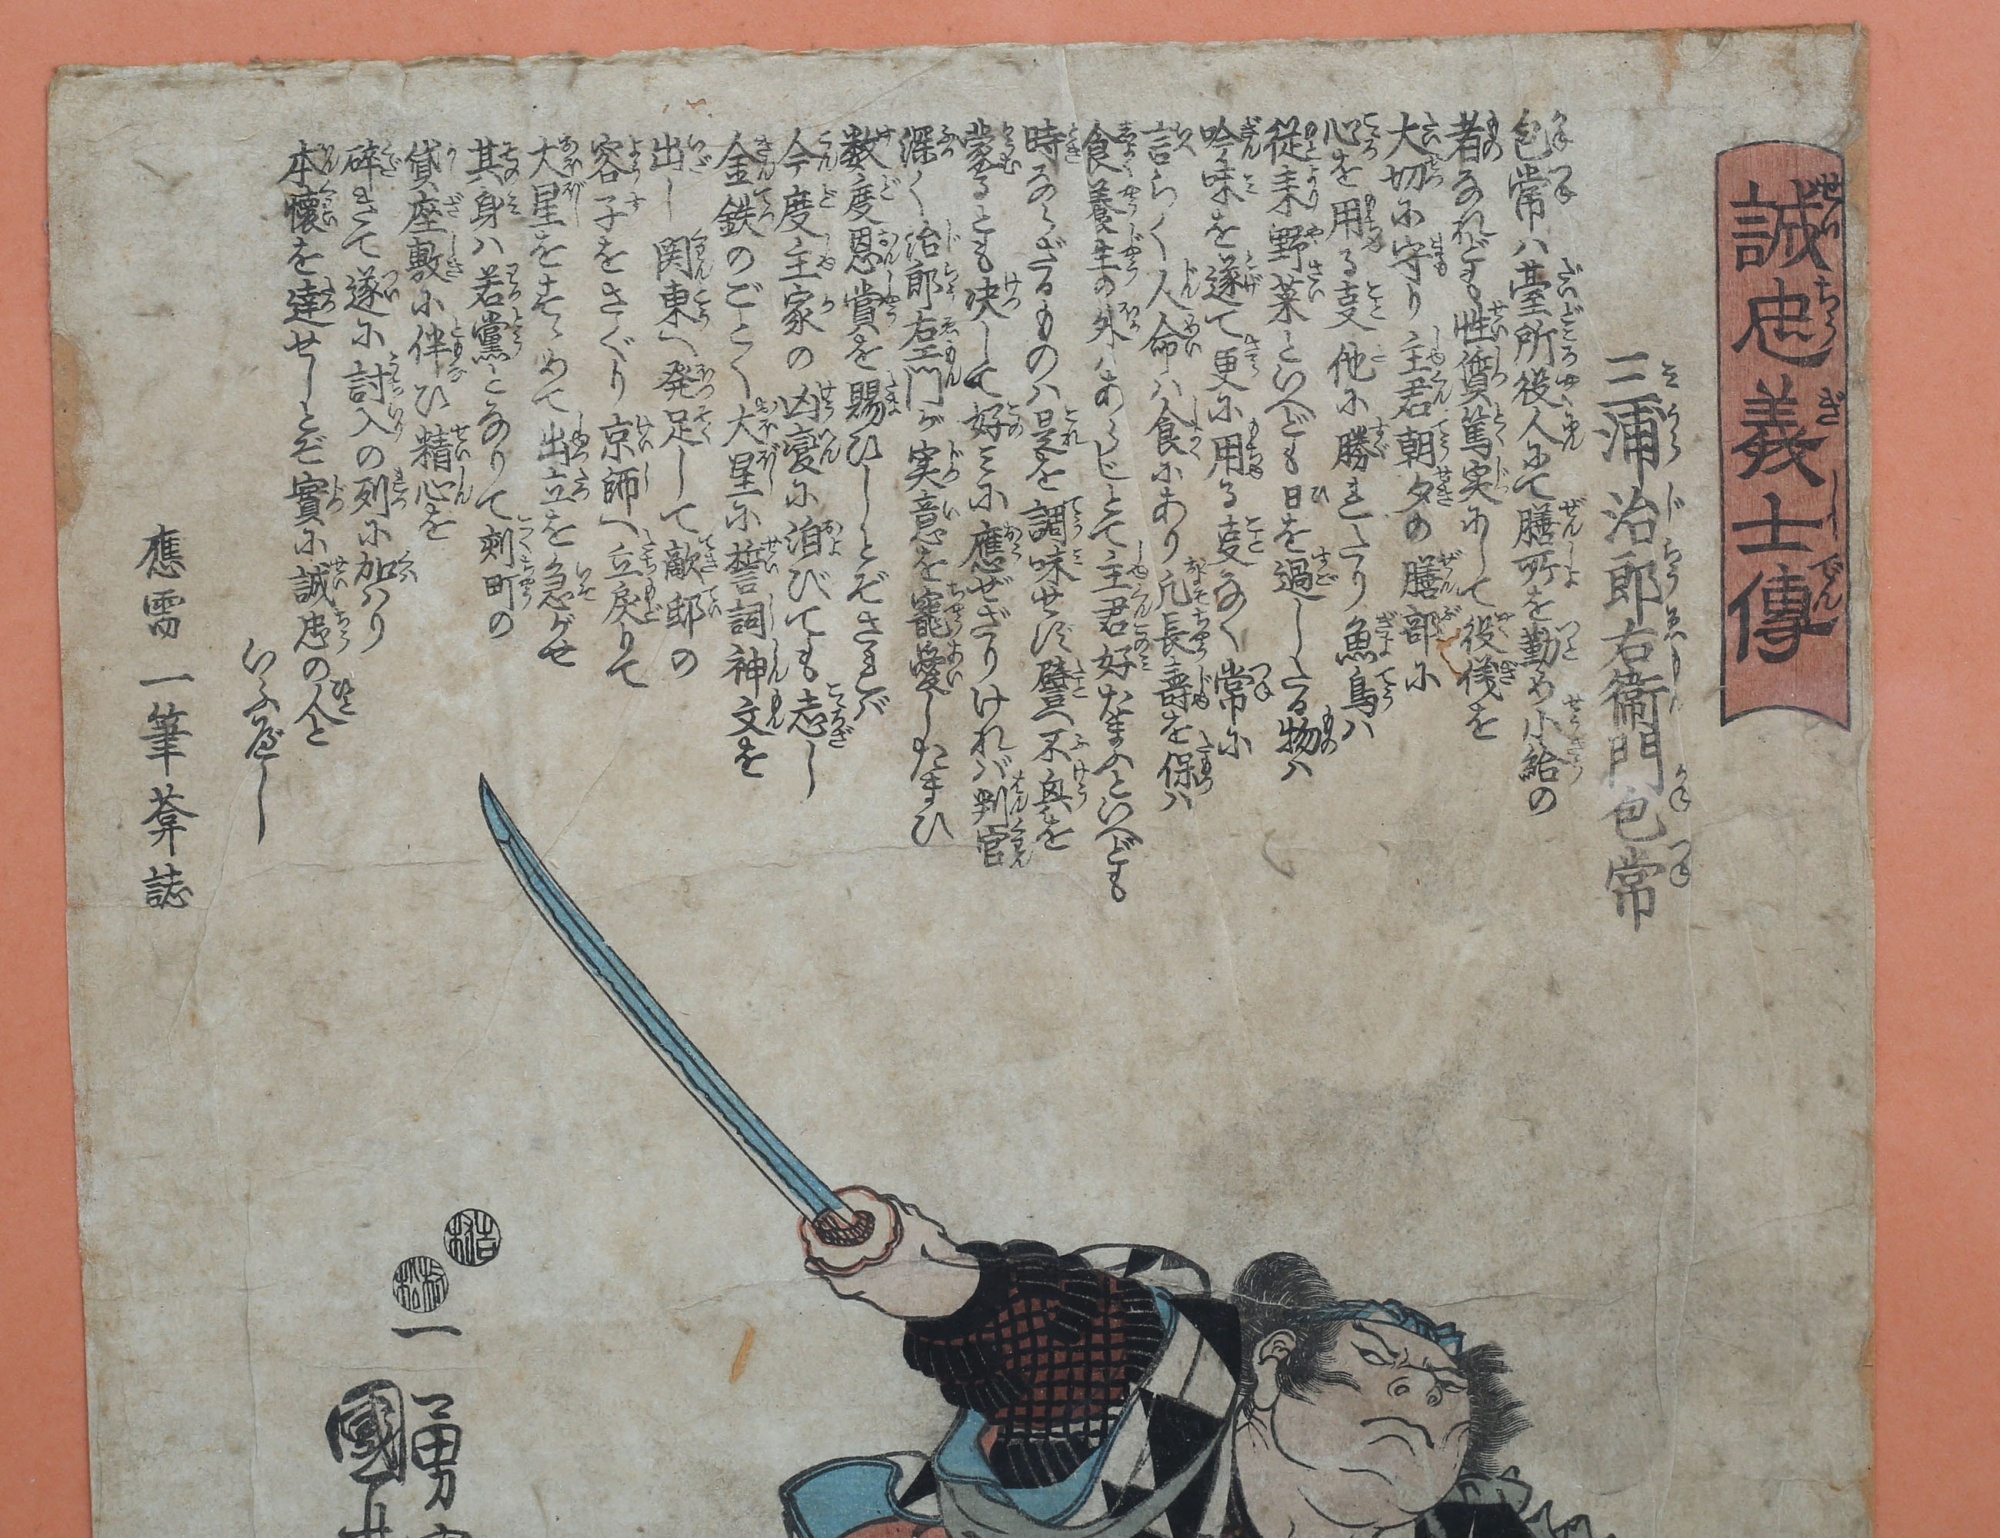 誠忠義士傳
三浦治郎右衞門包常
包常ハ臺所役人にて膳所を勤め小給の
者なれども性質篤実にして役儀を
大切に守り主君朝夕の膳部に
心を用る支他に勝れたり魚鳥ハ
従来野菜といへども日を過したる物ハ
吟味を遂て更に用る支なく常に
言らく人命ハ食にあり凡長壽を保ハ
食養生の外ハあらじとて主君好たまふといへども
時ならざるものハ是を調味せず譬へ不興を
蒙るとも决して好みに應ぜざりけれバ判官
深く治郎右エ門が実意を寵愛したまひ
数度恩賞を賜ひしとぞされバ
今度主家の凶変に洎びても志し
金鉄のごとく大星に誓詞神文を
出し関東へ発足して敵邸の
容子をさぐり京師へ立戻りて
大星をすゝめて出立を急がせ
其身ハ若黨となりて刻町の
貸座敷に伴ひ精心を
碎きて遂に討入の列に加ハり
本懐を達せしとぞ實に誠忠の人と
いふべし
應需一筆葊誌
一勇
國